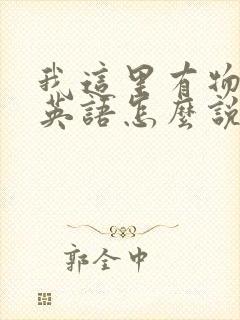 我這里有物
英語怎麼說
郭全中